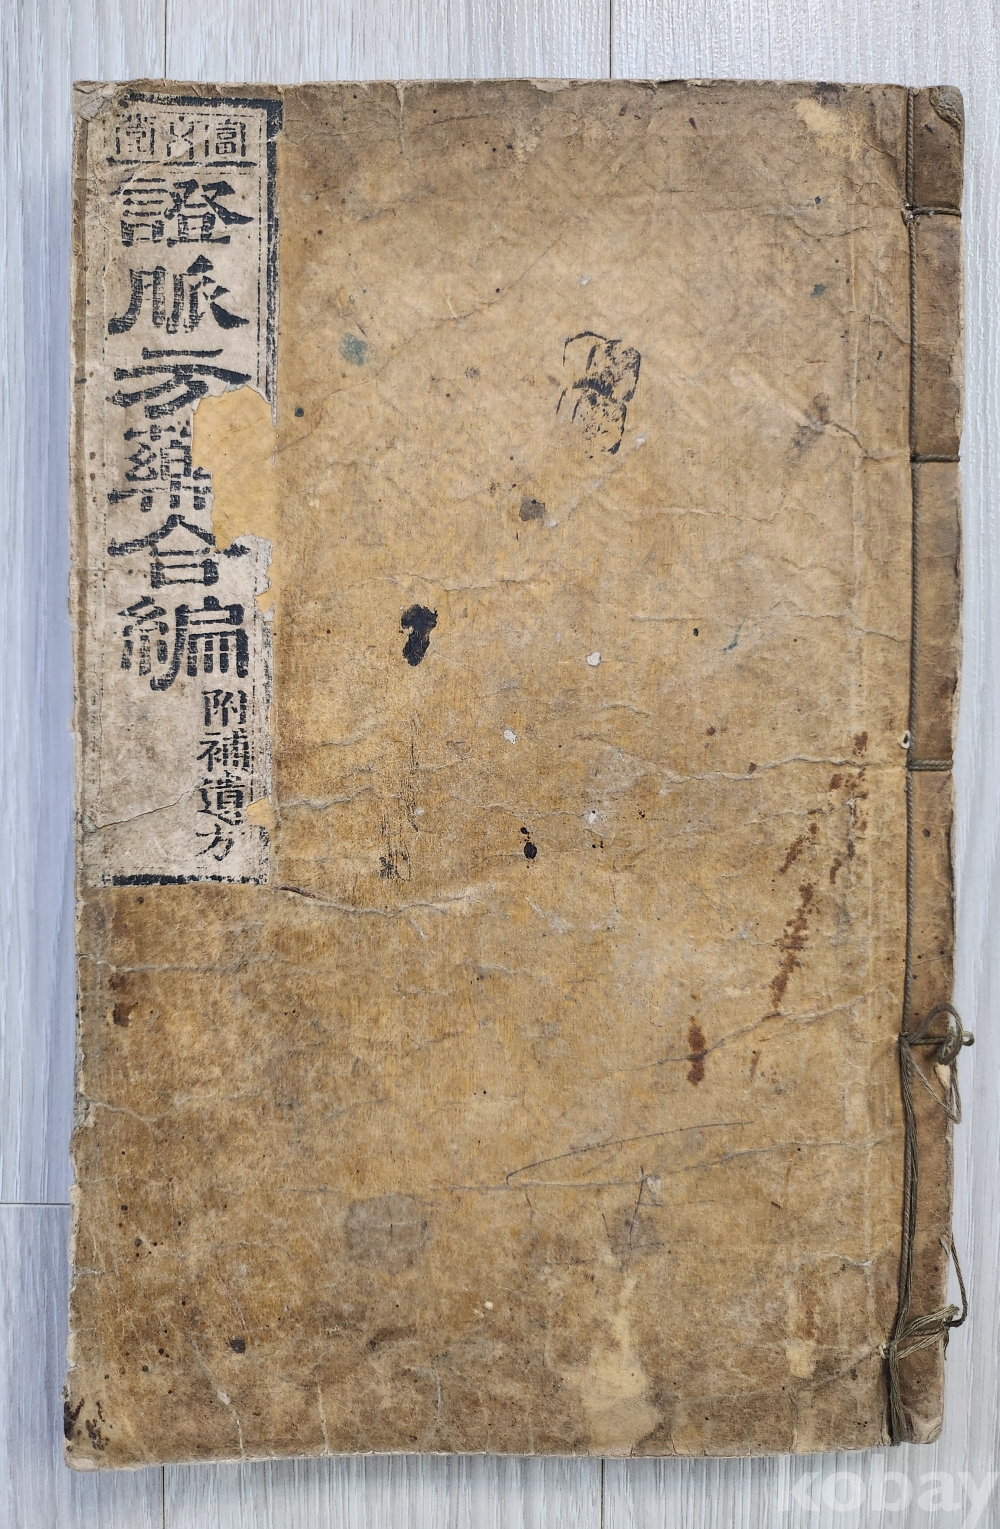 富春堂
證脈方藥合編
附補遺方
kobay